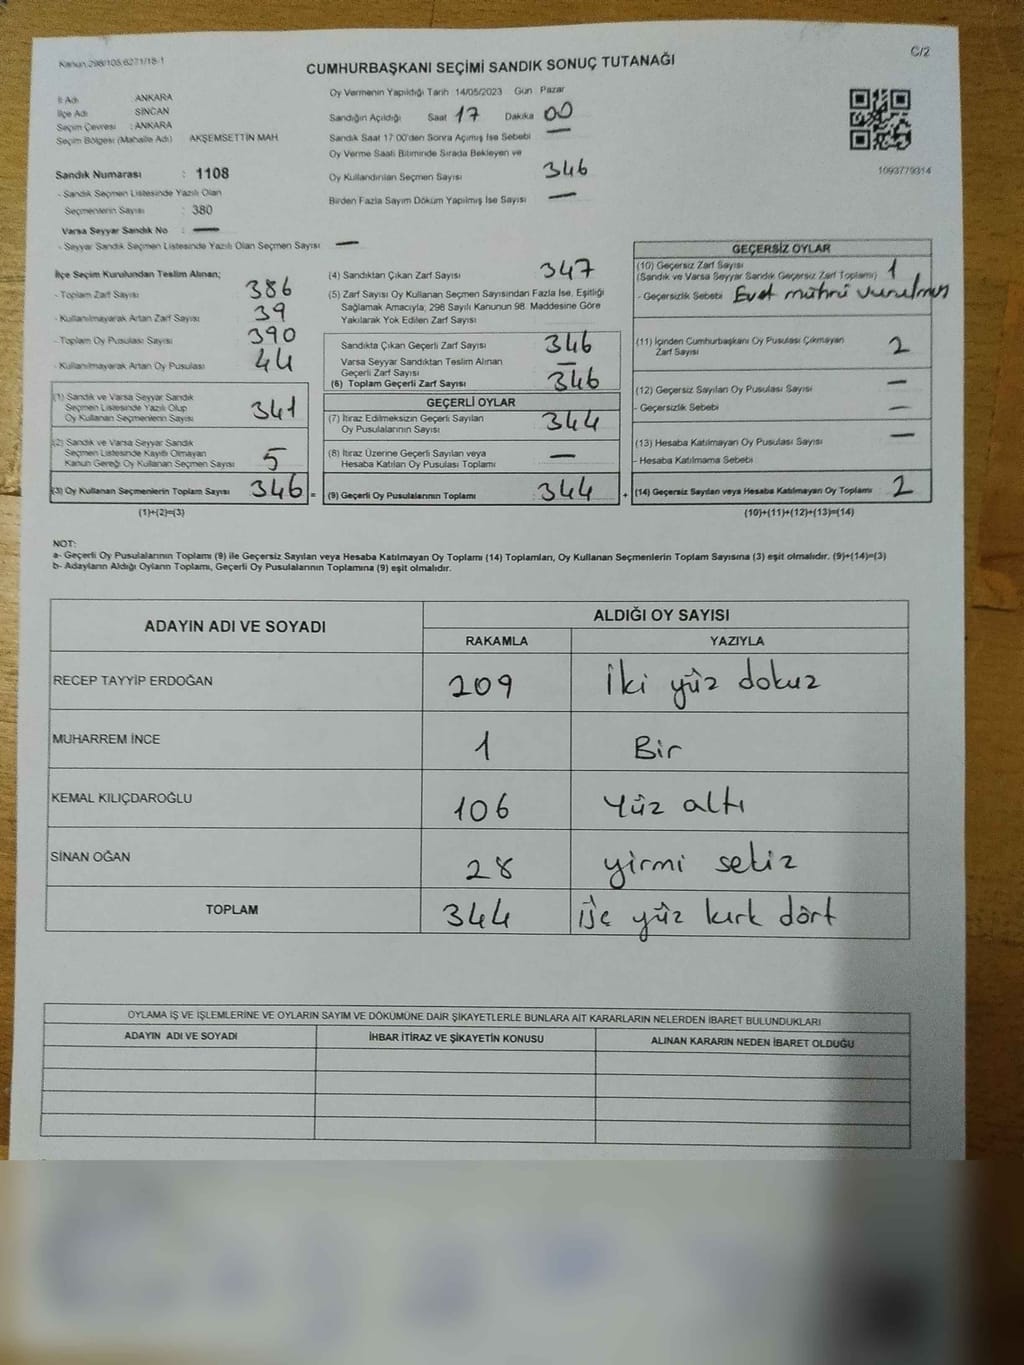 Kanun:298/105,6271/18-1
C/2
CUMHURBAŞKANI SEÇİMİ SANDIK SONUÇ TUTANAĞI
İl Adı : ANKARA
İlçe Adı : SİNCAN
Seçim Çevresi : ANKARA
Seçim Bölgesi (Mahalle Adı) AKŞEMSETTİN MAH
Sandık Numarası : 1108
- Sandık Seçmen Listesinde Yazılı Olan
Seçmenlerin Sayısı : 380
Varsa Seyyar Sandık No : —
- Seyyar Sandık Seçmen Listesinde Yazılı Olan Seçmen Sayısı —
Oy Vermenin Yapıldığı Tarih 14/05/2023 Gün Pazar
Sandığın Açıldığı Saat 17 Dakika 00
Sandık Saat 17:00'den Sonra Açımış İse Sebebi —
Oy Verme Saati Bitiminde Sırada Bekleyen ve
Oy Kullandırılan Seçmen Sayısı 346
Birden Fazla Sayım Döküm Yapılmış İse Sayısı —
1093779314
İlçe Seçim Kurulundan Teslim Alınan;
- Toplam Zarf Sayısı 386
- Kullanılmayarak Artan Zarf Sayısı 39
- Toplam Oy Pusulası Sayısı 390
- Kullanılmayarak Artan Oy Pusulası 44
(1) Sandık ve Varsa Seyyar Sandık
Seçmen Listesinde Yazılı Olup
Oy Kullanan Seçmenlerin Sayısı 341
(2) Sandık ve Varsa Seyyar Sandık
Seçmen Listesinde Kayıtlı Olmayan
Kanun Gereği Oy Kullanan Seçmen Sayısı 5
(3) Oy Kullanan Seçmenlerin Toplam Sayısı 346 =
(1)+(2)=(3)
(4) Sandıktan Çıkan Zarf Sayısı 347
(5) Zarf Sayısı Oy Kullanan Seçmen Sayısından Fazla İse, Eşitliği
Sağlamak Amacıyla, 298 Sayılı Kanunun 98. Maddesine Göre
Yakılarak Yok Edilen Zarf Sayısı
Sandıkta Çıkan Geçerli Zarf Sayısı 346
Varsa Seyyar Sandıktan Teslim Alınan
Geçerli Zarf Sayısı —
(6) Toplam Geçerli Zarf Sayısı 346
GEÇERLİ OYLAR
(7) İtiraz Edilmeksizin Geçerli Sayılan
Oy Pusulalarının Sayısı 344
(8) İtiraz Üzerine Geçerli Sayılan veya
Hesaba Katılan Oy Pusulası Toplamı —
(9) Geçerli Oy Pusulalarının Toplamı 344 +
GEÇERSİZ OYLAR
(10) Geçersiz Zarf Sayısı
(Sandık ve Varsa Seyyar Sandık Geçersiz Zarf Toplamı) 1
- Geçersizlik Sebebi Evet mührü vurulmuş
(11) İçinden Cumhurbaşkanı Oy Pusulası Çıkmayan
Zarf Sayısı 2
(12) Geçersiz Sayılan Oy Pusulası Sayısı —
- Geçersizlik Sebebi —
(13) Hesaba Katılmayan Oy Pusulası Sayısı —
- Hesaba Katılmama Sebebi
(14) Geçersiz Sayılan veya Hesaba Katılmayan Oy Toplamı 2
(10)+(11)+(12)+(13)=(14)
NOT:
a- Geçerli Oy Pusulalarının Toplamı (9) ile Geçersiz Sayılan veya Hesaba Katılmayan Oy Toplamı (14) Toplamları, Oy Kullanan Seçmenlerin Toplam Sayısına (3) eşit olmalıdır. (9)+(14)=(3)
b- Adayların Aldığı Oyların Toplamı, Geçerli Oy Pusulalarının Toplamına (9) eşit olmalıdır.
ADAYIN ADI VE SOYADI ALDIĞI OY SAYISI
RAKAMLA YAZIYLA
RECEP TAYYİP ERDOĞAN 209 İki yüz dokuz
MUHARREM İNCE 1 Bir
KEMAL KILIÇDAROĞLU 106 Yüz altı
SİNAN OĞAN 28 yirmi sekiz
TOPLAM 344 üç yüz kırk dört
OYLAMA İŞ VE İŞLEMLERİNE VE OYLARIN SAYIM VE DÖKÜMÜNE DAİR ŞİKAYETLERLE BUNLARA AİT KARARLARIN NELERDEN İBARET BULUNDUKLARI
ADAYIN ADI VE SOYADI İHBAR İTİRAZ VE ŞİKAYETİN KONUSU ALINAN KARARIN NEDEN İBARET OLDUĞU